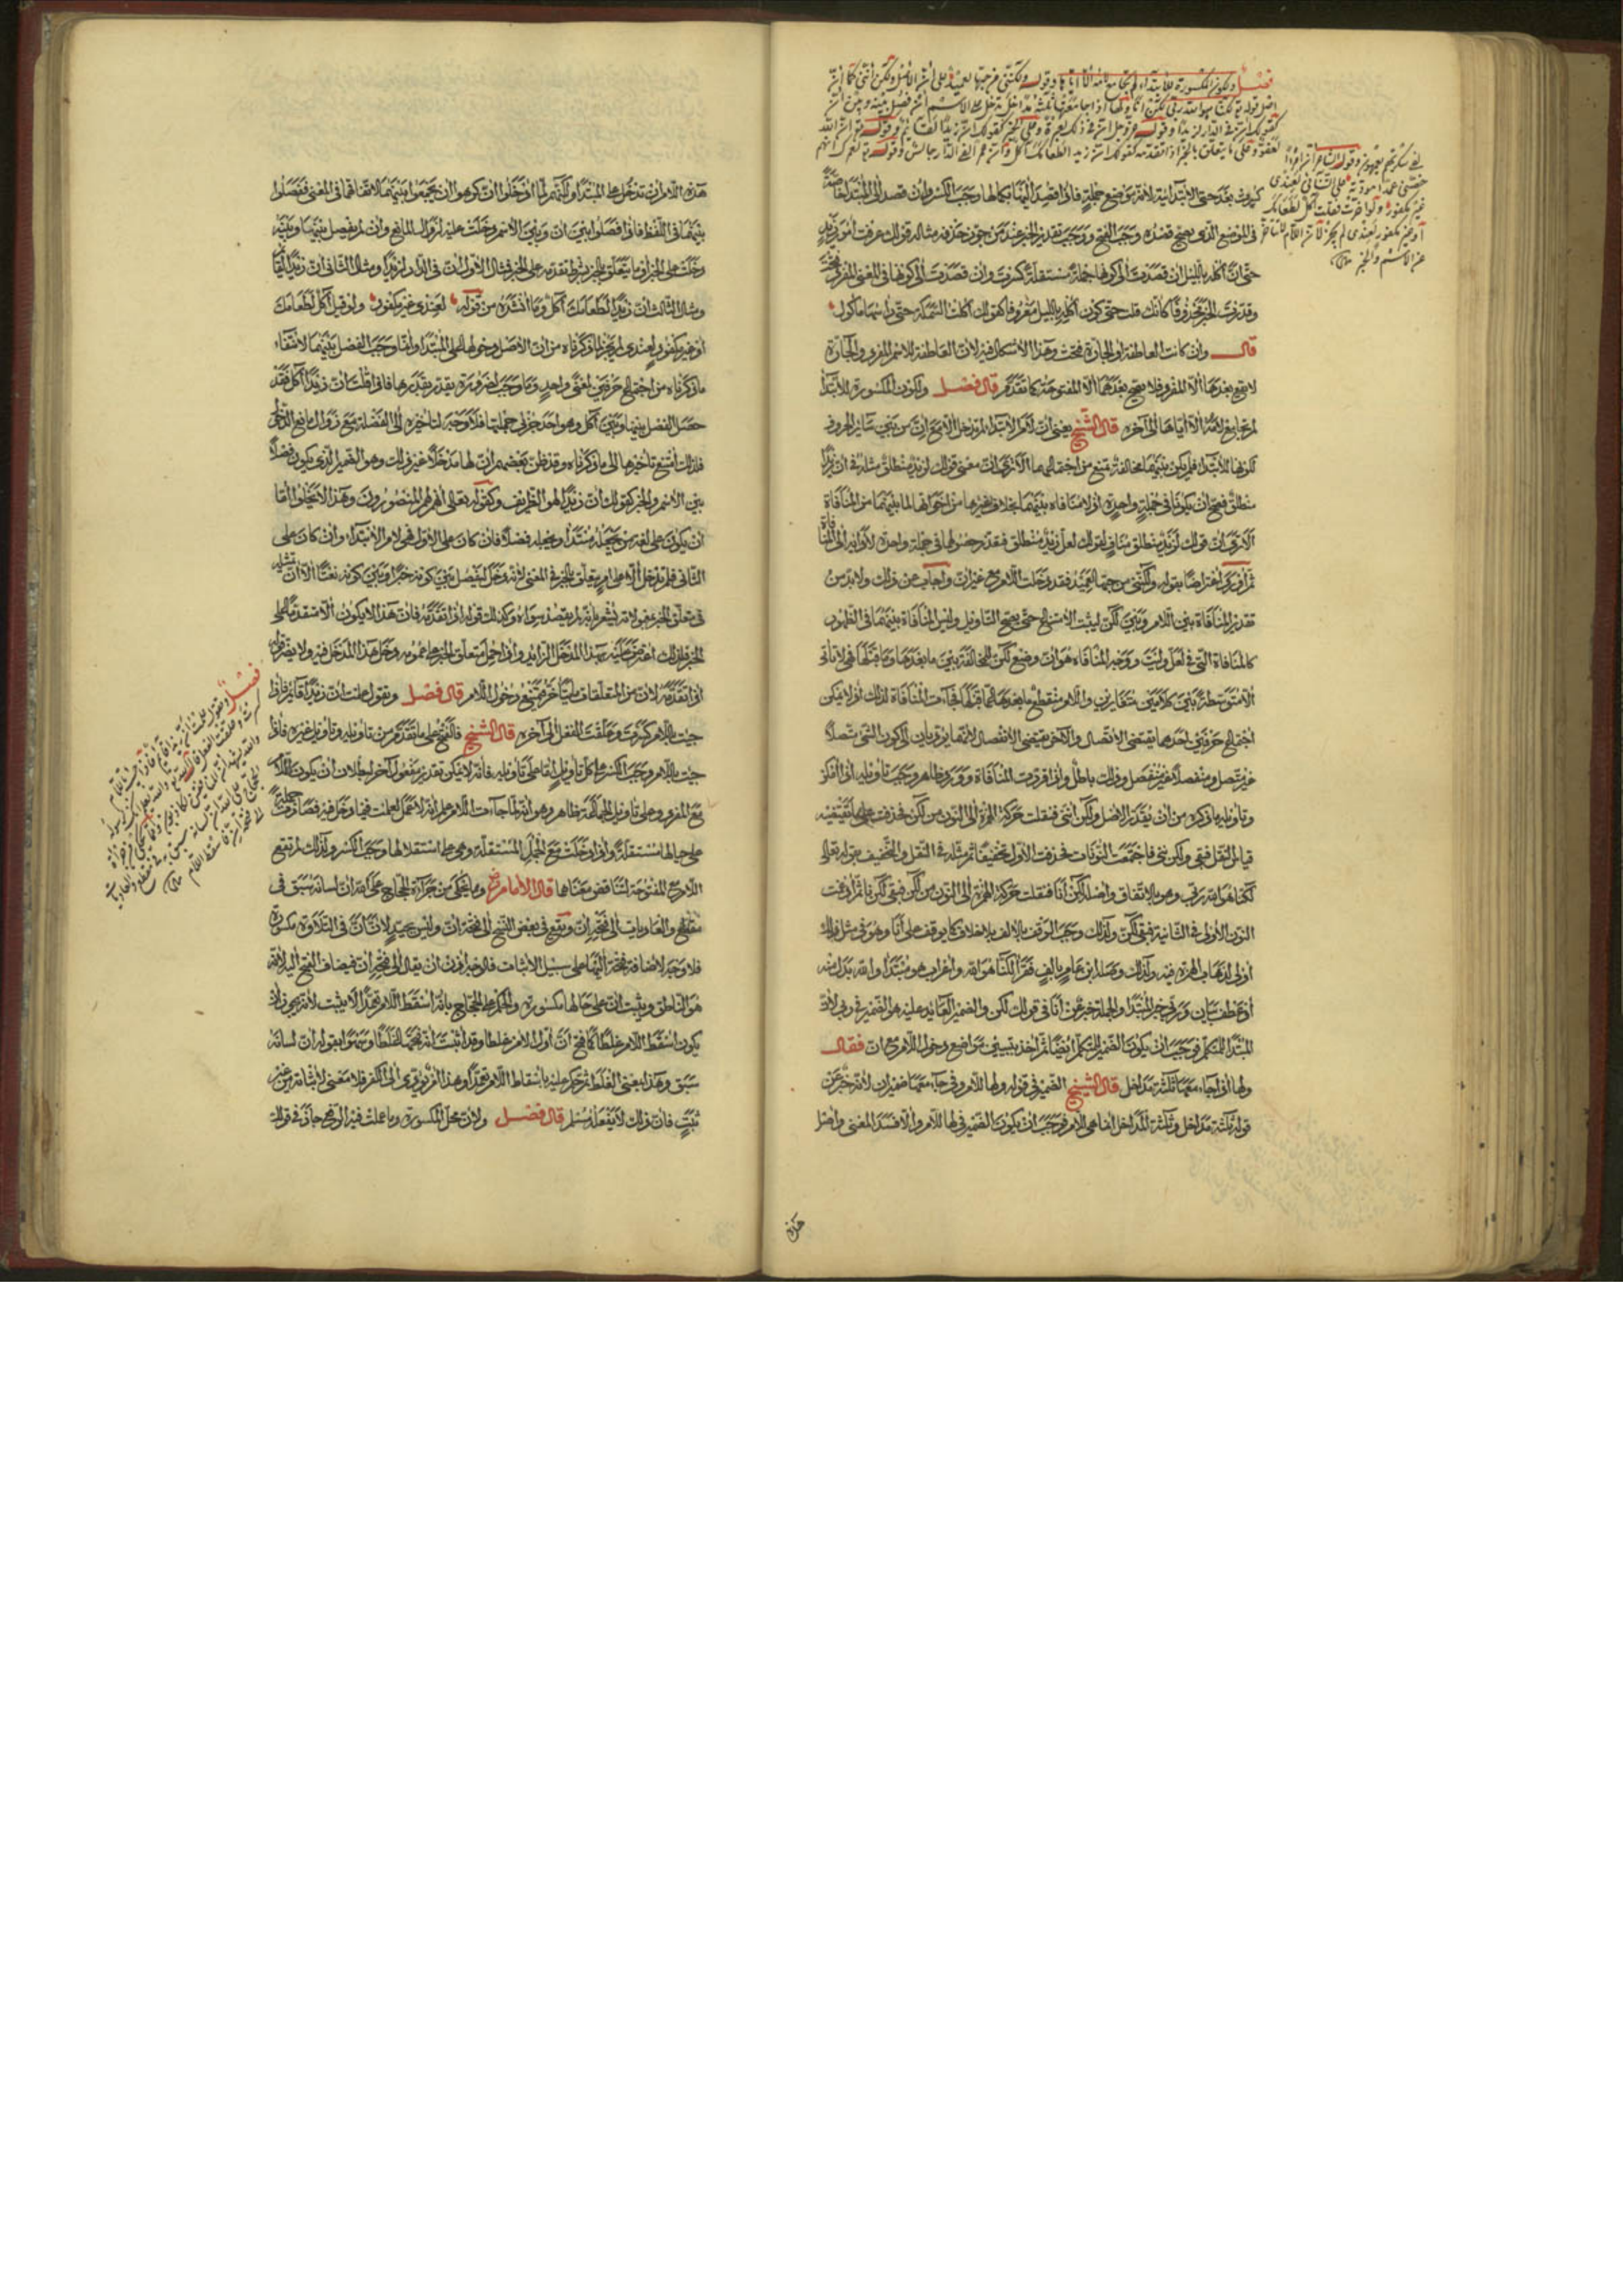 فصل ولكون المكسورة للابتداء لم تجامع لامه إلا إياها وقوله ولكنني من حبها لعميد على أن الأصل ولكن إنني كما أن
أصل قوله تعالى لكنا هو الله ربي لكن أنا ولها إذا جامعتها ثلثة مداخل تدخل على الاسم إن فصل بينه وبين إن
كقولك إن في الدار لزيدا وقوله عز وجل إن في ذلك لعبرة وعلى الخبر كقولك إن زيدا لقائم وقوله تعالى إن الله
لغفور وعلى ما يتعلق بالخبر إذا تقدمه كقولك إن زيدا لطعامك آكل وإن عمرا لفي الدار جالس وقوله تعالى لعمرك إنهم
لفي سكرتهم يعمهون وقول الشاعر إن امرأ
خصني عمدا مودته على التنائي لعندي
غير مكفور ولو أخرت فقلت آكل لطعامك
أو غير مكفور لعندي لم يجز لأن اللام لا تتأخر
عن الاسم والخبر
كسرت بعد حتى الابتدائية لأنه موضع جملة فإن قصد إليها بكمالها وجب الكسر وإن قصد إلى المبتدأ خاصة
في الموضع الذي يصح قصده وجب الفتح ووجب تقدير الخبر عند من جوز حذفه مثاله قولك عرفت أمور زيد
حتى أن أكله بالليل إن قصدت إلى كونها جملة مستقلة كسرت وإن قصدت إلى كونها في المعنى المفرد فتحت
وقدرت الخبر محذوفا كأنك قلت حتى كون أكله بالليل معروفا كقولك أكلت السمكة حتى رأسها مأكول
قال وإن كانت العاطفة أو الجارة فتحت وهذا لا إشكال فيه لأن العاطفة للاسم المفرد والجارة
لا يقع بعدها إلا المفرد فلا يصح بعدهما إلا المفتوحة كما تقدم قال فصل ولكون المكسورة للابتداء
لم تجامع لامه إلا إياها إلى آخره قال الشيخ يعني أن لام الابتداء لم تدخل إلا مع إن من بين سائر الحروف
لكونها للابتداء فلم يكن بينهما مخالفة تمنع من اجتماعهما ألا ترى أن معنى قولك لزيد منطلق مثله في إن زيدا
منطلق فصح أن يكونا في جملة واحدة إذ لا منافاة بينهما بخلاف غيرها من أخواتها لما بينهما من المنافاة
ألا ترى أن قولك لزيد منطلق مناف لقولك لعل زيدا منطلق فقد حصولها في جملة واحدة لأدائه إلى المنافاة
ثم أورد اعتراضا بقوله ولكنني من حبها لعميد فقد دخلت اللام مع غير إن وأجاب عن ذلك ولا بد من
تقدير المنافاة بين اللام وبين لكن ليثبت الامتناع حتى يصح التأويل وليس المنافاة بينهما في الظهور
كالمنافاة التي في لعل وليت ووجه المنافاة هو أن وضع لكن للمخالفة بين ما بعدها وما قبلها فهي لا تأتي
إلا متوسطة بين كلامين متغايرين واللام منقطع ما بعدها عما قبلها فجاءت المنافاة لذلك إذ لا يمكن
اجتماع حرفين أحدهما يقتضي الاتصال والآخر يقتضي الانفصال لأنهما يؤديان إلى كون الشيء متصلا
غير متصل ومنفصلا غير منفصل وذلك باطل وإذا قررت المنافاة وورد ظاهر وجب تأويله إن أمكن
وتأويله ما ذكره من أن يقدر الأصل ولكن إنني فنقلت حركة الهمزة إلى النون من لكن فحذفت على ما يقتضيه
قياس النقل فبقي ولكن نني فاجتمعت النونات فحذفت الأولى تخفيفا ثم مثله في النقل والتخفيف بقوله تعالى
لكنا هو الله ربي وهو بالاتفاق وأصله لكن أنا فنقلت حركة الهمزة إلى النون من لكن فبقي لكن نا ثم أدغمت
النون الأولى في الثانية فبقي لكن ولذلك وجب الوقف بالألف بلا خلاف كما يوقف على أنا وهو في مثل ذلك
أولى لذهاب الهمزة فيه ولذلك وصله ابن عامر بألف فقرأ لكنا هو الله وإعراب هو مبتدأ والله بدل منه
أو عطف بيان وربي خبر المبتدأ والجملة خبر عن أنا في قولك لكن والضمير العائد عليه هو الضمير في ربي لأن
المبتدأ للمتكلم فوجب أن يكون الضمير للمتكلم أيضا ثم أخذ يبين مواضع دخول اللام مع إن فقال
ولها إذا جاء معها ثلثة مداخل قال الشيخ الضمير في قوله ولها للام وفي جاء معها ضمير إن لأنه خبر عن
قوله ثلثة مداخل وثلثة المداخل إنما هي للام فوجب أن يكون الضمير في لها للام وإلا فسد المعنى وأصل
هذه
هذه اللام أن تدخل على المبتدأ ولكنهم لما أدخلوا إن كرهوا أن يجمعوا بينهما لاتفاقهما في المعنى ففصلوا
بينهما في اللفظ فإن فصلوا بين إن وبين الاسم دخلت عليه لزوال المانع وإن لم يفصل بينهما وبينه
دخلت على الخبر أو ما يتعلق بالخبر بشرط تقدمه على الخبر فمثال الأول إن في الدار لزيدا ومثال الثاني إن زيدا لقائم
ومثال الثالث إن زيدا لطعامك آكل وما أنشده من قوله لعندي غير مكفور ولو قيل آكل لطعامك
أو غير مكفور لعندي لم يجز لما ذكرناه من أن الأصل دخولها على المبتدأ وإنما وجب الفصل بينهما لانتفاء
ما ذكرناه من اجتماع حرفين لمعنى واحد وما وجب لضرورة يقدر بقدرها فإذا قلت إن زيدا آكل فقد
حصل الفصل بينها وبين آكل وهو أحد جزئي جملتها فلا وجه لتأخيره إلى الفضلة مع زوال مانع الدخول
فلذلك امتنع تأخيرها إلى ما ذكرناه وقد ظن بعضهم أن لها مدخلا غير ذلك وهو الضمير الذي يكون فصلا
بين الاسم والخبر كقولك إن زيدا لهو الظريف وكقوله تعالى إنهم لهم المنصورون وهذا لا يخلو إما
أن يكون على لغة من يجعله مبتدأ أو يجعله فصلا فإن كان على الأول فهي لام الابتداء وإن كان على
الثاني فلم تدخل إلا على أمر يتعلق بالخبر في المعنى لأنه دخل ليفصل بين كونه خبرا وبين كونه نعتا إلا أن تمثيله
في متعلق الخبر بمعموله يشعر بأنه لم يقصد سواه وكذلك قوله إذا تقدمه فإن هذا لا يكون إلا متقدما على
الخبر فلذلك اعترض عليه بهذا المدخل الزائد وإذا حمل متعلق الخبر على عمومه دخل هذا المدخل فيه ولا يضر قوله
إذا تقدمه لأن من المتعلقات ما يتأخر فيمتنع دخول اللام قال فصل وتقول علمت أن زيدا قائم فإذا
جئت باللام كسرت وعلقت الفعل إلى آخره قال الشيخ فالفتح على ما تقدم من تأويله وتأويل غيره فإذا
جئت باللام وجب الكسر على كل تأويل أما على تأويله فإنه لا يمكن تقدير مفعول آخر لبطلان أن يكون اللام
مع المفرد وعلى تأويل الجملة ظاهر وهو أنه لما جاءت اللام علم أنه لا عمل لعلمت فيما دخل فيه فصارت جملة
على حيالها مستقلة وإذا دخلت مع الجمل المستقلة وهي على استقلالها وجب الكسر ولذلك لم تقع
اللام مع المفتوحة لتناقض معناهما قال الإمام وما يحكى من جراءة الحجاج على الله أن لسانه سبق في
مقطع والعاديات إلى فتحة إن ويقع في بعض النسخ إلى فتحة أن وليس بجيد لأن أن في التلاوة مكسورة
فلا وجه لإضافة فتحة إليها على سبيل الإثبات فالوجه إذن أن يقال إلى فتح إن فيضاف الفتح إليه لأنه
هو الناطق ويثبت إن على حالها مكسورة والحكم على الحجاج بأنه أسقط اللام تعمدا لا يثبت لأنه يجوز أن
يكون أسقط اللام غلطا كما فتح أن أول الأمر غلطا وقد أثبت أنه فتحها غلطا وسموا بقوله إن لسانه
سبق وهذا بمعنى الغلط ثم حكم عليه بإسقاط اللام تعمدا وهذا الذي يؤدي إلى الكفر فلا معنى لإثباته من غير
ثبت فإن ذلك لا يفعله مسلم قال فصل ولأن محل المكسورة وما عملت فيه الرفع جاز في قولك
فصل وتقول علمت أن زيدا قائم فإذا جئت باللام
كسرت وعلقت الفعل قال الله تعالى والله يعلم إنك لرسوله
والله يشهد إن المنافقين لكاذبون ومما يحكى من جراءة
الحجاج على الله تعالى أن لسانه سبق في مقطع والعاديات
إلى فتحة إن فأسقط اللام